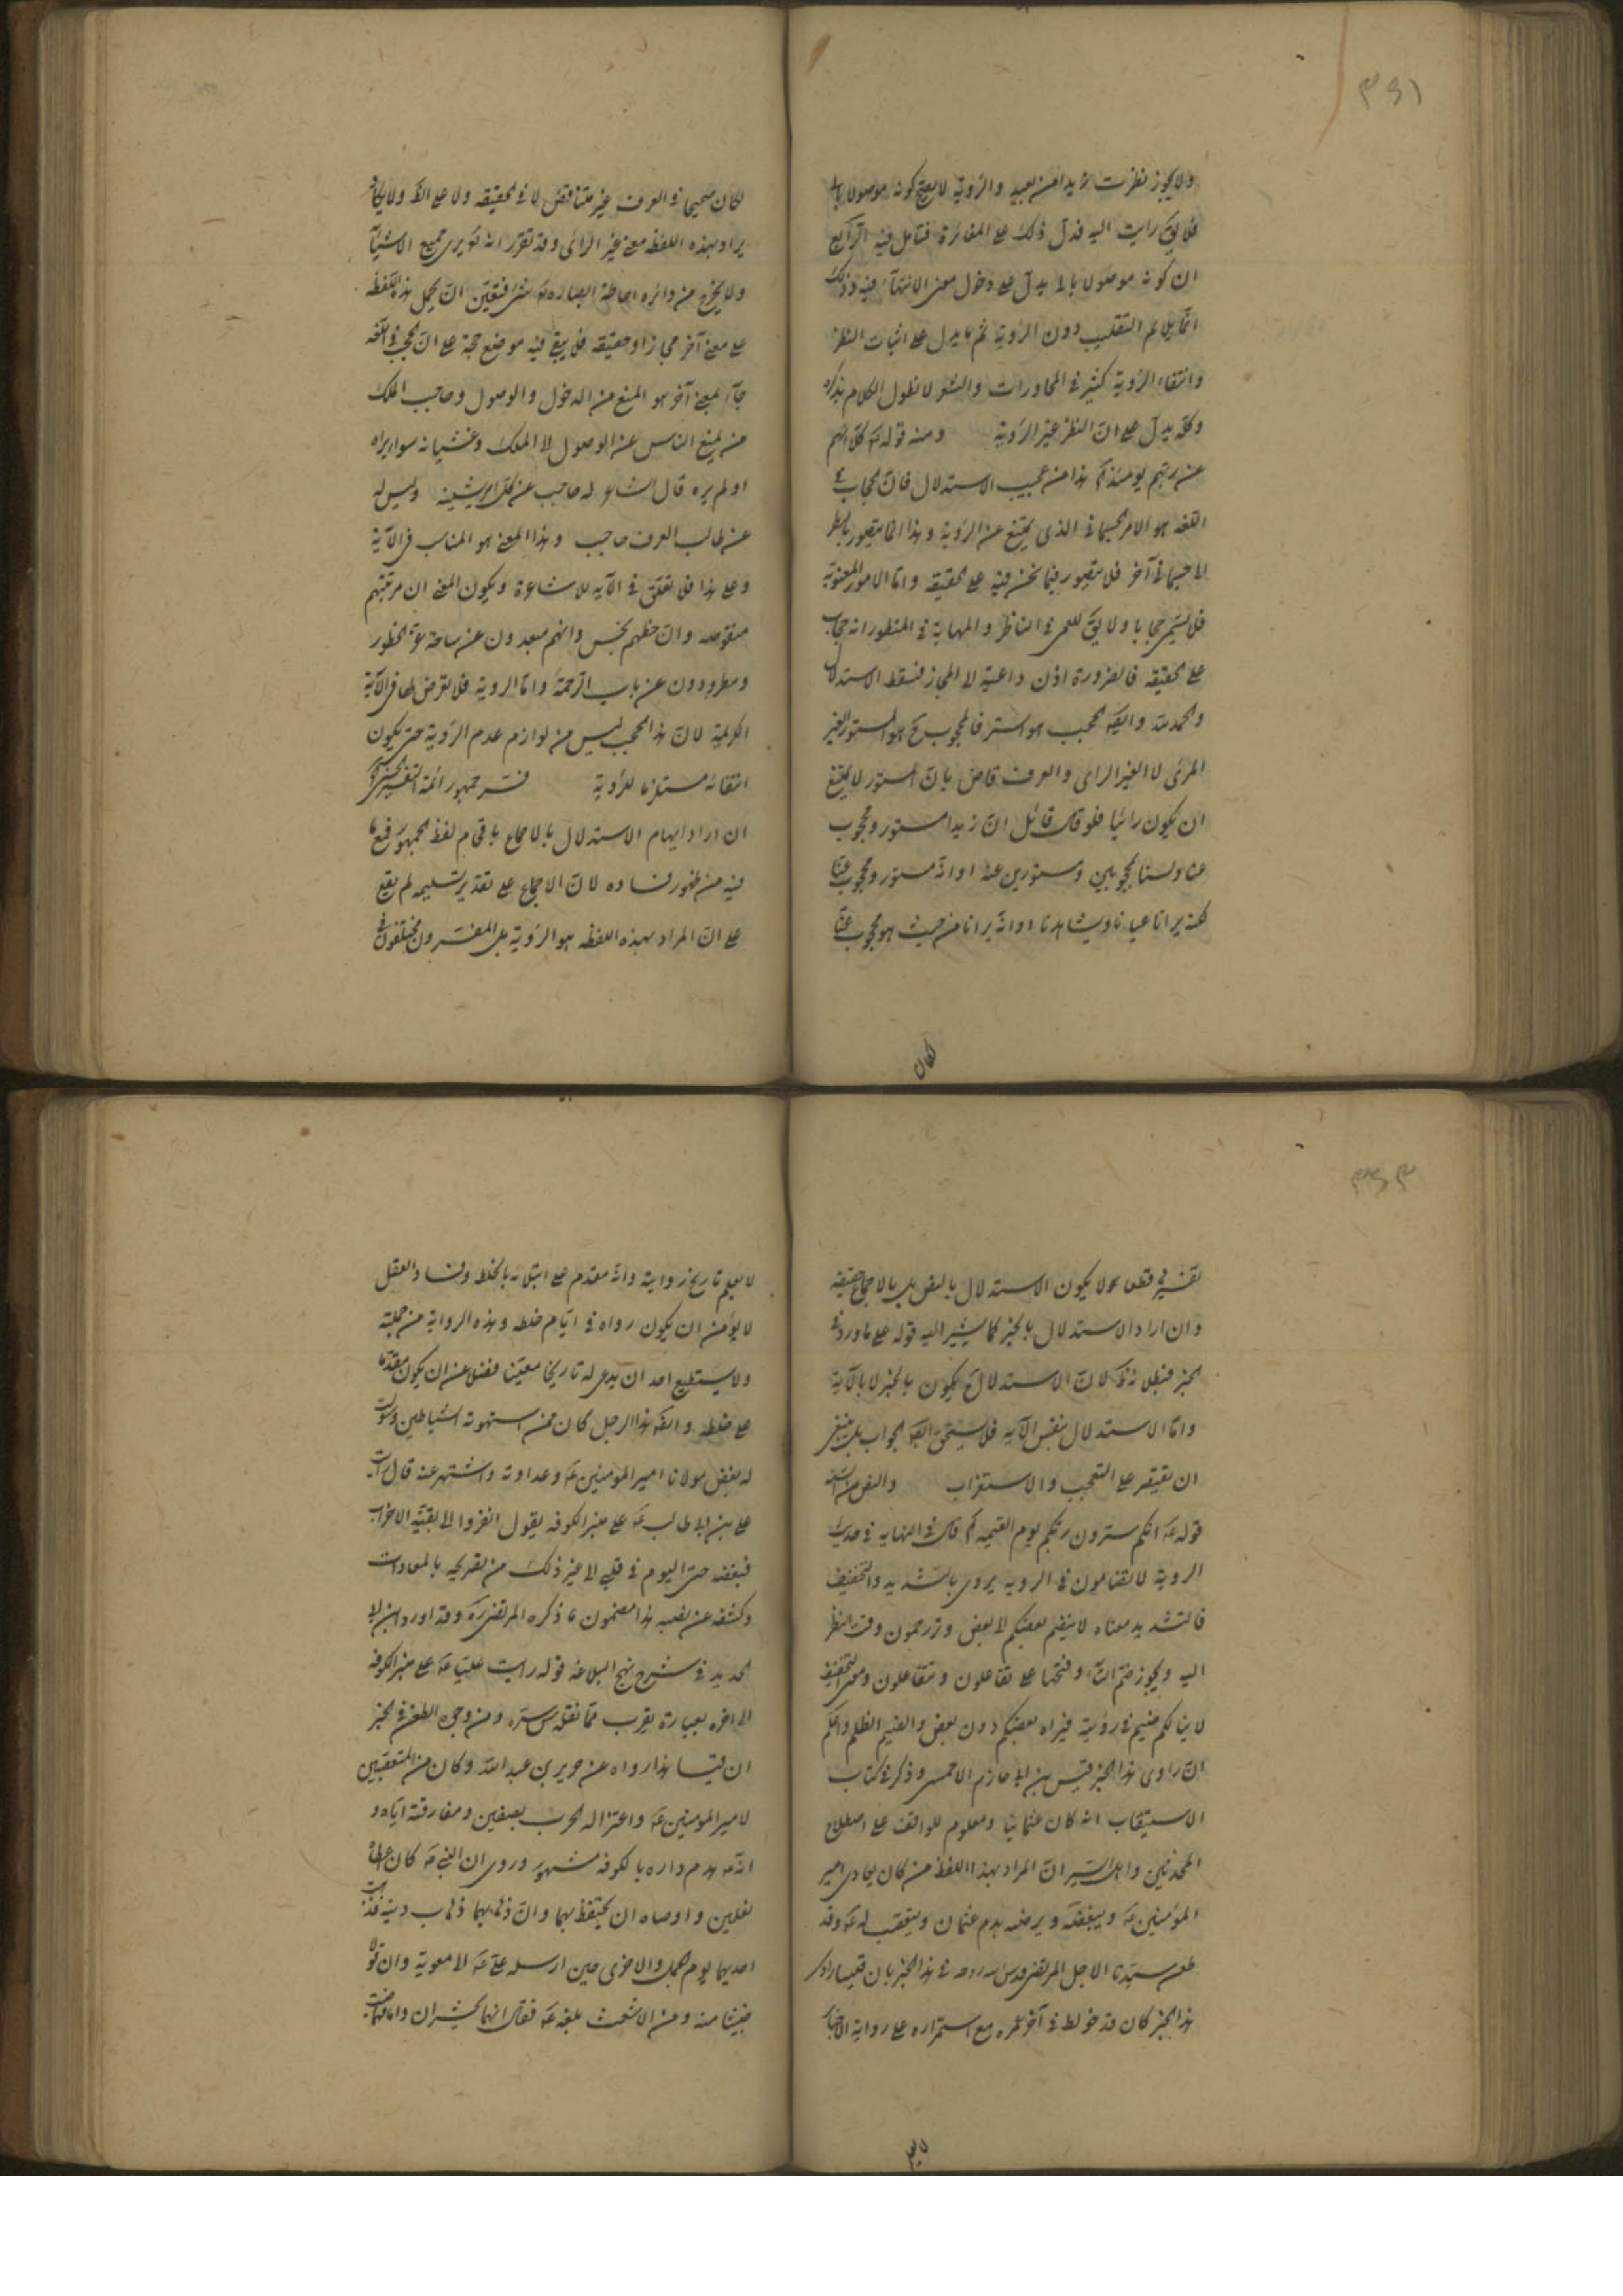 ٣٥١
ولا يجوز نظرت زيدا من بعيد والرؤية لا يصح كونه موصولا بالى
فلا يق رايت اليه فدل ذلك على المغائرة فتامل فيه الرابع
ان كونه موصولا بالى يدل على دخول معنى الانتهاء فيه وذلك
انما يلائم التقليب دون الرؤية ثم ما يدل على اثبات النظر
وانتفاء الرؤية كثير في المحاورات والشعر لا نطول الكلام بذكره
وكله يدل على ان النظر غير الرؤية ومنه قوله تع كلا انهم
عن ربهم يومئذ هذا من عجيب الاستدلال فان الحجاب في
اللغه هو الامر الجسمانى الذى يمنع عن الرؤية وهذا انما يتصور بالنظر
الى جسمانى آخر فلا يتصور فيما نحن فيه على الحقيقه واما الامور المعنوية
فلا يسمى حجابا ولا يق للعمى في الناظر والمهابة في المنظور انه حجاب
على الحقيقه فالضرورة اذن داعية الى المجاز فسقط الاستدلال
والحمد لله وايضا الحجب هو الستر فالمحجوب ح هو المستور الغير
المرئى لا الغير الرائى والعرف قاض بان المستور لا يمتنع
ان يكون رائيا فلو قال قائل ان زيدا مستور ومحجوب
عنا ولسنا بمحجوبين ومستورين عنه او انه مستور ومحجوب عنا
لكنه يرانا عيانا ويشاهدنا او انه يرانا من حيث هو محجوب عنا
لكان
لكان صحيحا في العرف غير متناقض لا في الحقيقه ولا على الظ ولا
يراد بهذه اللفظه معنى غير الرائى وقد تقرر انه تع يرى جميع الاشياء
ولا يخرج من دائره احاطة ابصاره تع شئ فتعين ان يحمل هذه اللفظه
على معنى آخر مجازا او حقيقه فلا يبقى فيه موضع حجة على ان الحجب في اللغه
جاء لمعنى آخر هو المنع من الدخول والوصول وحاجب الملك
من يمنع الناس عن الوصول الى الملك وغشيانه سواء يراه
او لم يره قال الشاعر له حاجب عن كل امر يشينه وليس له
عن طالب العرف حاجب وهذا المعنى هو المناسب في الآية
وعلى هذا فلا تعلق في الآيه للاشاعرة ويكون المعنى ان مرتبتهم
منقوصه وان حظهم بخس وانهم مبعدون عن ساحة عز الحضور
ومطرودون عن باب الرحمة واما الرويه فلا تعرض لها في الآية
الكريمة لان هذا الحجب ليس من لوازم عدم الرؤية حتى يكون
انتفائه مستلزما للرؤية فسر جمهور ائمة التفسير
ان اراد ايهام الاستدلال بالاجماع باقحام لفظ الجمهور فمع ما
فيه من ظهور فساده لان الاجماع على تقدير تسليمه لم يقع
على ان المراد بهذه اللفظه هو الرؤية بل المفسرون مختلفون في
٣٥٢
تفسيره قطعا لا يكون الاستدلال بالنص بل بالاجماع حقيقه
وان اراد الاستدلال بالخبر كما يشير اليه قوله على ما ورد في
الخبر فبطلانه لان الاستدلال ح يكون بالخبر لا بالآية
واما الاستدلال بنفس الآيه فلا يستحق ايضا الجواب بل ينبغى
ان يقتصر على التعجب والاستغراب والنص من السنه
قوله ع انكم سترون ربكم يوم القيمه قال في النهايه في حديث
الرويه لا تضامون في الرويه يروى بالتشديد والتخفيف
فالتشديد معناه لا ينضم بعضكم الى بعض وتزدحمون وقت النظر
اليه ويجوز ضم التاء وفتحها على تفاعلون وتتفاعلون ومعنى التخفيف
لا ينالكم ضيم في رؤيته فيراه بعضكم دون بعض والضيم الظلم واعلم
ان راوى هذا الخبر قيس بن ابى حازم الاحمسى وذكر في كتاب
الاستيعاب انه كان عثمانيا ومعلوم للواقف على اصطلاح
المحدثين واهل السير ان المراد بهذا اللفظ من كان يعادى امير
المؤمنين ع ويبغضه ويرضه بدم عثمان ويتعصب له ع وقد
طعن سيدنا الاجل المرتضى قدس الله روحه في هذا الخبر بان قيسا راوى
هذا الخبر كان قد خولط في آخر عمره مع استمراره على رواية الاخبار
لا يعلم
لا يعلم تاريخ روايته وانه مقدم على ابتلائه بالخلط وفساد العقل
لا يؤمن ان يكون رواه في ايام خلطه وهذه الرواية من جملته
ولا يستطيع احد ان يدعى له تاريخا معينا فضلا عن ان يكون مقدما
على خلطه وايضا هذا الرجل كان ممن استهوته الشياطين وسولت
له بغض مولانا امير المؤمنين ع وعداوته واشتهر عنه قال رايت
على بن ابى طالب ع على منبر الكوفه يقول انفروا الى بقية الاحزاب
فبغضه حتى اليوم في قلبى الى غير ذلك من تصريحه بالمعادات
وكشفه عن نصبه هذا مضمون ما ذكره المرتضى ره وقد اورد ابن ابى
الحديد في شرح نهج البلاغه قوله رايت عليا ع على منبر الكوفه
الى اخره بعبارة يقرب مما نقله س سره ومن وجوه الطعن في الخبر
ان قيسا هذا رواه عن جرير بن عبد الله وكان من المتعصبين
لامير المؤمنين ع واعتزاله الحرب بصفين ومفارقته اياه و
انه ع هدم داره بالكوفه مشهور وروى ان النبى ص كان اعطاه
نعلين واوصاه ان يحتفظ بهما وان ذهابهما ذهاب دينه فذهبت
احديهما يوم الجمل والاخرى حين ارسله على ع الى معوية وان
خبيثا منه ومن الاشعث بلغه ع فقال انهما